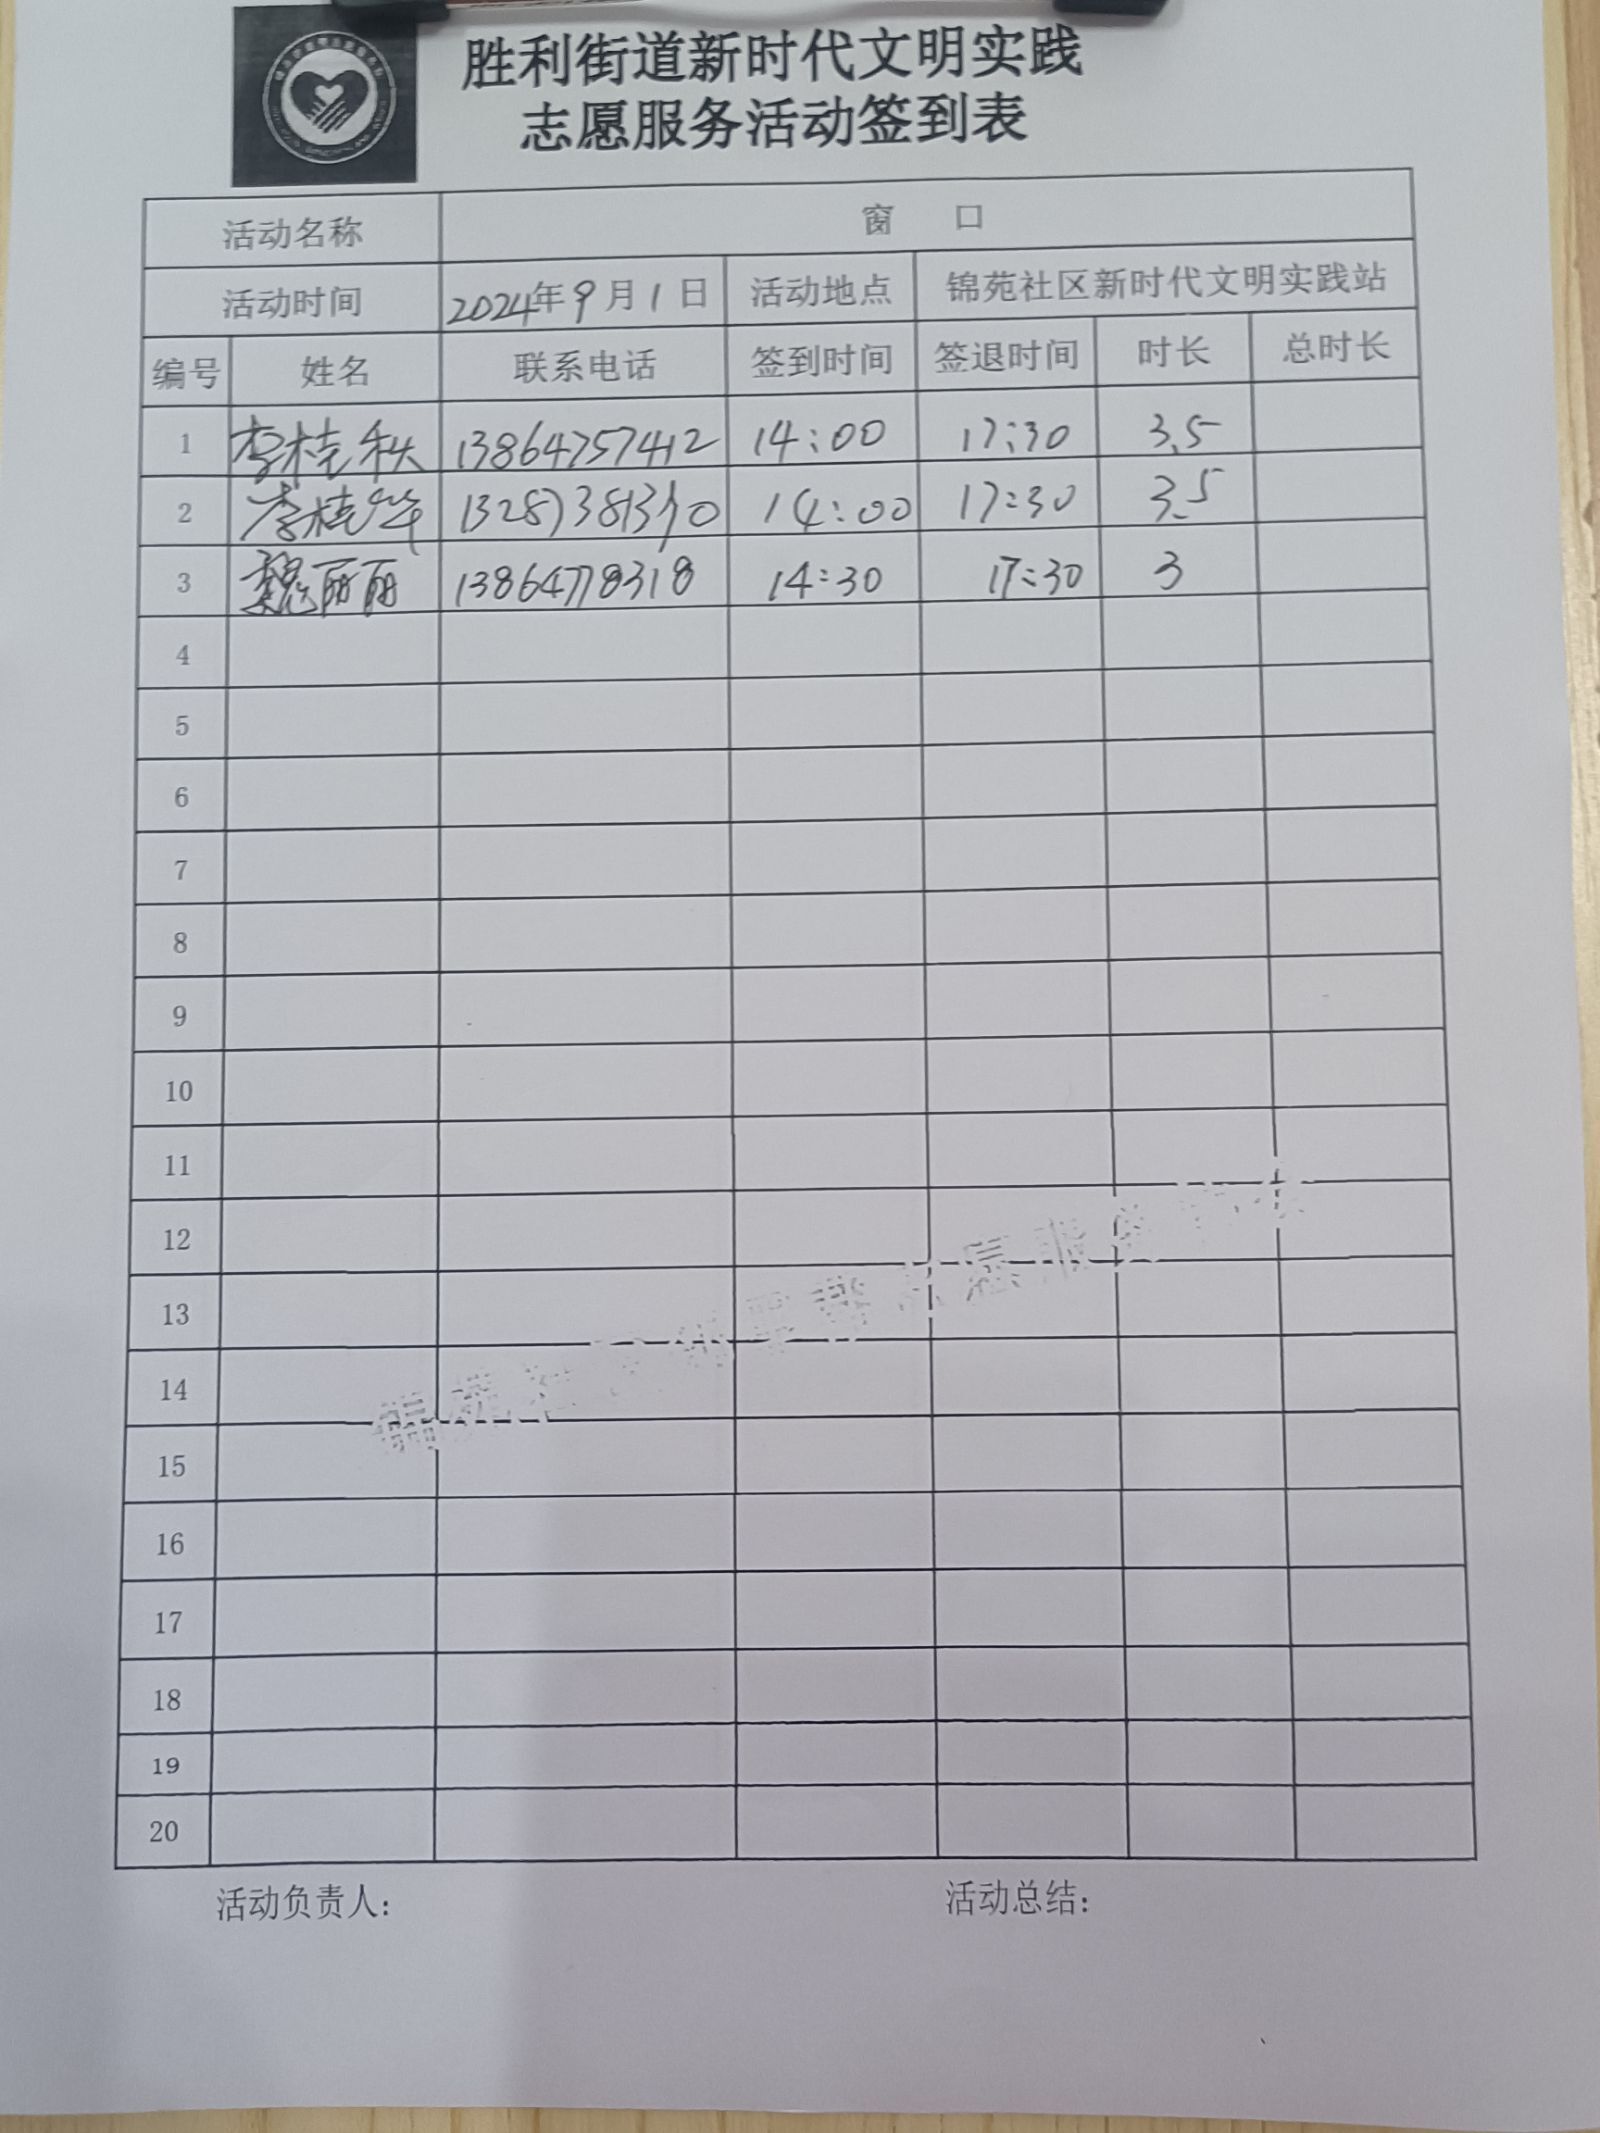 胜利街道新时代文明实践
志愿服务活动签到表
活动名称 窗 口
活动时间 2024年9月1日 活动地点 锦苑社区新时代文明实践站
编号 姓名 联系电话 签到时间 签退时间 时长 总时长
1 李桂秋 13864757412 14:00 17:30 3.5
2 李桂华 14:00 17:30 3.5
3 魏丽丽 13864778318 14:30 17:30 3
4
5
6
7
8
9
10
11
12
13
14
15
16
17
18
19
20
活动负责人: 活动总结: